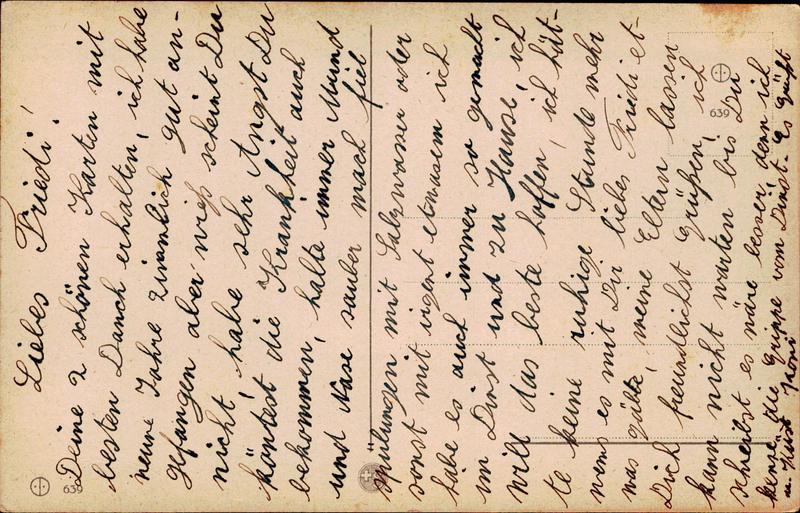 Liebes Friedi!
Deine 2 schönen Karten mit
besten Danck erhalten, ich habe
neune Jahre zimmlich gut an-
gefangen aber wiehs scheint Du
nicht habe sehr Angst Du
köntest die Krankheit auch
bekommen, halte immer Mund
und Nase sauber mach fiel
spülungen mit Salzwasser oder
sonst mit irgent etwasem ich
habe es auch immer so gemacht
im Dinst und zu Hause, ich
will das beste hoffen, ich hät-
te keine ruhige Stunde mehr
wens es mit Dir liebes Friedi et-
was gälte, meine Eltern lassen
Dich freundlichst grüßen, ich
kann nicht warten bis Du
schreibst es wäre besser, denn ich
kenne die Grippe vom Dinst. Es grüßt
u. küst
639
639